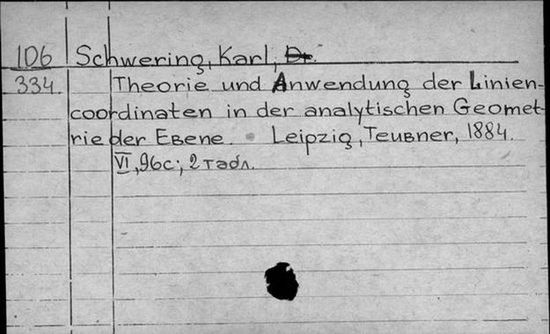 106 Schwering, Karl, Dr.
334. Theorie und Anwendung der Linien-
coordinaten in der analytischen Geomet-
rie der Ebene. Leipzig, Teubner, 1884.
VI, 96c; 2 табл.